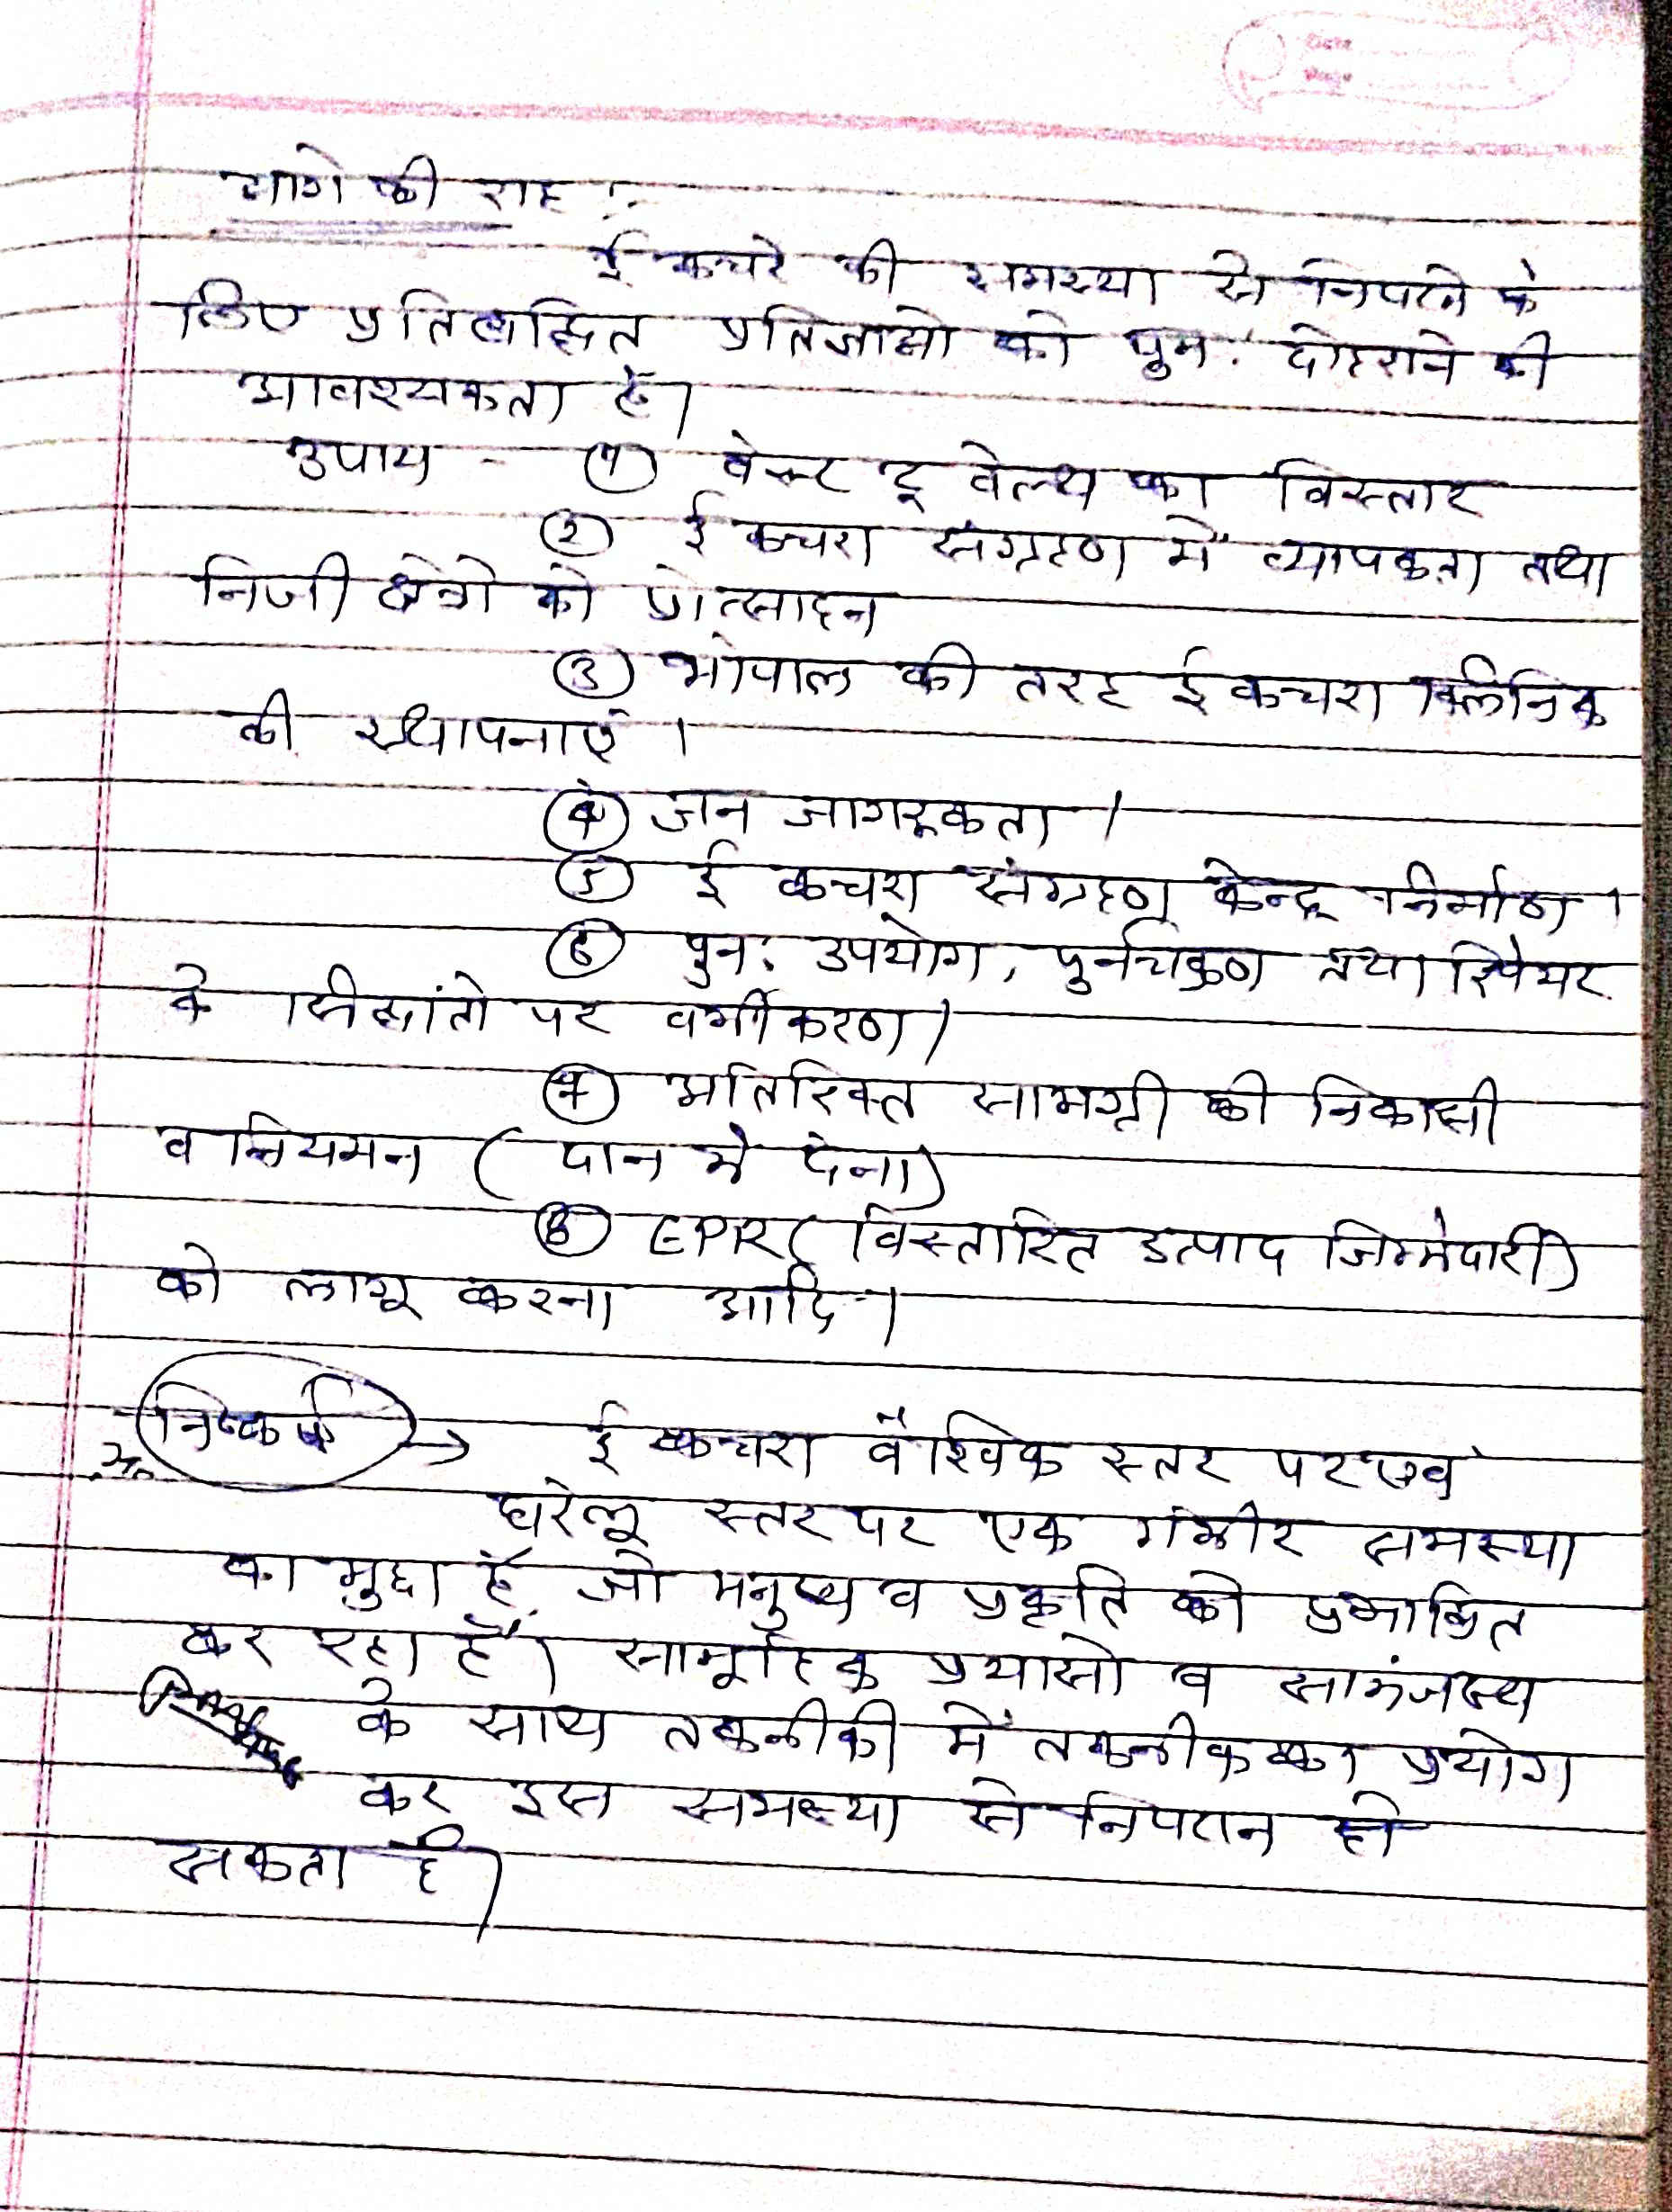 Date
Page
आगे की राह :-
ई कचरे की समस्या से निपटने के
लिए प्रतिबाधित प्रतिज्ञाओ को पुन: दोहराने की
आवश्यकता है।
उपाय - (1) वेस्ट टू वेल्थ का विस्तार
(2) ई कचरा संग्रहण में व्यापकता तथा
निजी क्षेत्रो को प्रोत्साहन
(3) भोपाल की तरह ई कचरा क्लिनिक
की स्थापनाएं ।
(4) जन जागरूकता ।
(5) ई कचरा संग्रहण केन्द्र निर्माण ।
(6) पुन: उपयोग, पुर्नचक्रण तथा रिपेयर
के सिद्धांतो पर वर्गीकरण।
(7) अतिरिक्त सामग्री की निकासी
व नियमन ( दान मे देना)
(8) EPR( विस्तारित उत्पाद जिम्मेदारी)
को लागू करना आदि।
निष्कर्ष → ई कचरा वैश्विक स्तर पर एवं
घरेलू स्तर पर एक गंभीर समस्या
का मुद्दा है, जो मनुष्य व प्रकृति को प्रभावित
कर रहा है। सामूहिक प्रयासो व सामंजस्य
के साथ तकनीकी में तकनीक का प्रयोग
कर इस समस्या से निपटान हो
सकता है।